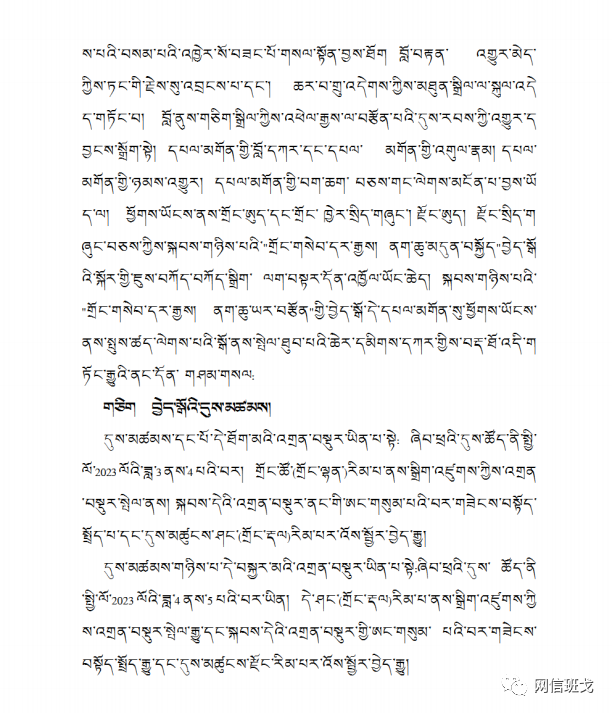 ས་པའི་བསམ་པའི་འཁྱེར་སོ་བཟང་པོ་གསལ་སྟོན་བྱས་ཐོག བློ་བརྟན་ འགྱུར་མེད་
ཀྱིས་ཏང་གི་རྗེས་སུ་འབྲངས་པ་དང་། ཆར་བ་གྲུ་འདེགས་ཀྱིས་མཐུན་སྒྲིལ་ལ་སྐུལ་འདེ
ད་གཏོང་བ། བློ་ནུས་གཅིག་སྒྲིལ་ཀྱིས་འཕེལ་རྒྱས་ལ་བརྩོན་པའི་དུས་རབས་ཀྱི་འགྱུར་ད
བྱངས་སྒྲོག་སྟེ། དཔལ་མགོན་གྱི་བློ་དཀར་དང་དཔལ་ མགོན་གྱི་འགུལ་རྣམ། དཔལ་
མགོན་གྱི་ཉམས་འགྱུར། དཔལ་མགོན་གྱི་བག་ཆག་ བཅས་གང་ལེགས་མངོན་པ་བྱས་ཡོ
ད་ལ། ཕྱོགས་ཡོངས་ནས་གྲོང་ཨུད་དང་གྲོང་ ཁྱེར་སྲིད་གཞུང་། རྫོང་ཨུད། རྫོང་སྲིད་ག
ཞུང་བཅས་ཀྱིས་སྐབས་གཉིས་པའི་"གྲོང་གསེབ་དར་རྒྱས། ནག་ཆུ་མདུན་བསྐྱོད"བྱེད་སྒོ
འི་སྐོར་གྱི་ཇུས་བཀོད་བཀོད་སྒྲིག་ ལག་བསྟར་དོན་འཁྱོལ་ཡོང་ཆེད། སྐབས་གཉིས་པའི་
"གྲོང་གསེབ་དར་རྒྱས། ནག་ཆུ་ཡར་བརྩོན"གྱི་བྱེད་སྒོ་དེ་དཔལ་མགོན་སུ་ཕྱོགས་ཡོངས་
ནས་སྤུས་ཚད་ལེགས་པའི་སྒོ་ནས་སྤེལ་ཐུབ་པའི་ཆེར་དམིགས་དཀར་གྱིས་བརྡ་ཐོ་འདི་ག
ཏོང་རྒྱུའི་ནང་དོན་ གཤམ་གསལ:
གཅིག བྱེད་སྒོའི་དུས་མཚམས།
དུས་མཚམས་དང་པོ་དེ་ཐོག་མའི་འགྲན་བསྡུར་ཡིན་པ་སྟེ: ཞིབ་ཕྲའི་དུས་ཚོད་ནི་སྤྱི་
ལོ་2023ལོའི་ཟླ་3ནས་4པའི་བར། གྲོང་ཚོ་(གྲོང་ལྷན་)རིམ་པ་ནས་སྒྲིག་འཛུགས་ཀྱིས་འགྲན
་བསྡུར་སྤེལ་ནས། སྐབས་དེའི་འགྲན་བསྡུར་ནང་གི་ཨང་གསུམ་པའི་བར་གཟེངས་བསྟོད་
སྤྲོད་པ་དང་དུས་མཚུངས་ཤང་(གྲོང་རྡལ)རིམ་པར་འོས་སྦྱོར་བྱེད་རྒྱུ།
དུས་མཚམས་གཉིས་པ་དེ་བསྐྱར་མའི་འགྲན་བསྡུར་ཡིན་པ་སྟེ:ཞིབ་ཕྲའི་དུས་ ཚོད་ནི
་སྤྱི་ལོ་2023ལོའི་ཟླ་4ནས་5པའི་བར་ཡིན། དེ་ཤང་(གྲོང་རྡལ)རིམ་པ་ནས་སྒྲིག་འཛུགས་ཀྱི
ས་འགྲན་བསྡུར་སྤེལ་རྒྱུ་དང་སྐབས་དེའི་འགྲན་བསྡུར་གྱི་ཨང་གསུམ་ པའི་བར་གཟེངས་
བསྟོད་སྤྲོད་རྒྱུ་དང་དུས་མཚུངས་རྫོང་རིམ་པར་འོས་སྦྱོར་བྱེད་རྒྱུ།
网信班戈